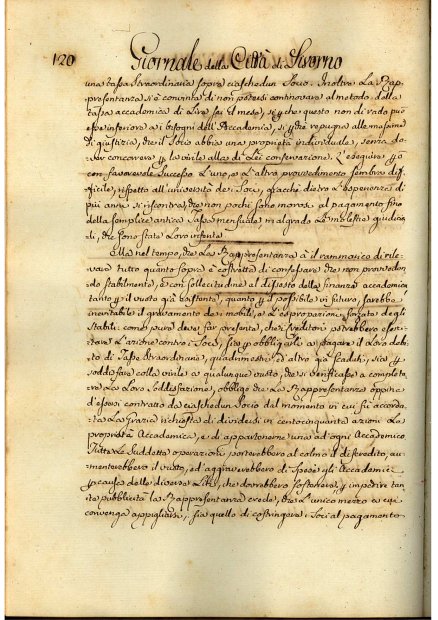 120 Giornale della Città di Livorno
una tassa straordinaria sopra ciaschedun Socio. Inoltre La Rap=
presentanza si è convinta di non potersi continovare al metodo della
tassa accademica di Lire sei il mese, sì che questo non di rado può
essere inferiore ai bisogni dell'Accademia, sì che repugna alle massime
di giustizia, che il Socio abbia una proprietà individuale, senza do=
ver concorrere p la virile alla di Lei conservazione. L'eseguire p
con favorevole Successo L'uno, o L'altro provvedimento sembra dif=
ficile, rispetto all'università dei Soci, giacchè dietro L'esperienza di
più anni si riscontra, che non pochi sono morosi al pagamento fino
della semplice antica Tassa mensuale, malgrado Le molestie giudicia=
li, che sono state Loro inferite.
Ma nel tempo, che La Rappresentanza à il rammarico di rile=
vare tutto quanto sopra è costretta di confessare che non provveden=
do stabilmente, e con sollecitudine al disesto della finanza accademica
tanto p il vuoto già esistente, quanto p il possibile in futuro, sarebbe
inevitabile il gravamento dei mobili, e L'espropriazione forzata degli
Stabili: come pure deve far presente, che i Creditori potrebbero eserci=
tare L'azione contro i Soci, sì p obbligarli a pagare il Loro debi=
to di Tasse straordinarie, quadrimestri ed altro già scaduti, sì p
soddisfare colla virile a qualunque vuoto, che si verificasse a completa=
re La Loro Soddisfazione, obbligo che La Rappresentanza opina
d'essersi contratto da ciaschedun Socio dal momento in cui fu accorda=
ta La Grazia richiesta di dividersi in centocinquanta azioni La
proprietà Accademica, e di appartenerne una ad ogni Accademico
Tutte Le Suddette operazioni porterebbero al colmo il discredito, au=
menterebbero il vuoto, ed aggraverebbero di Spese gli Accademici
p causa delle diverse Liti, che dovrebbero sostenere, p impedire tan=
te pubblicità La Rappresentanza crede, che L'unico mezzo a cui
convenga appigliarsi, sia quello di costringere i Soci al pagamento